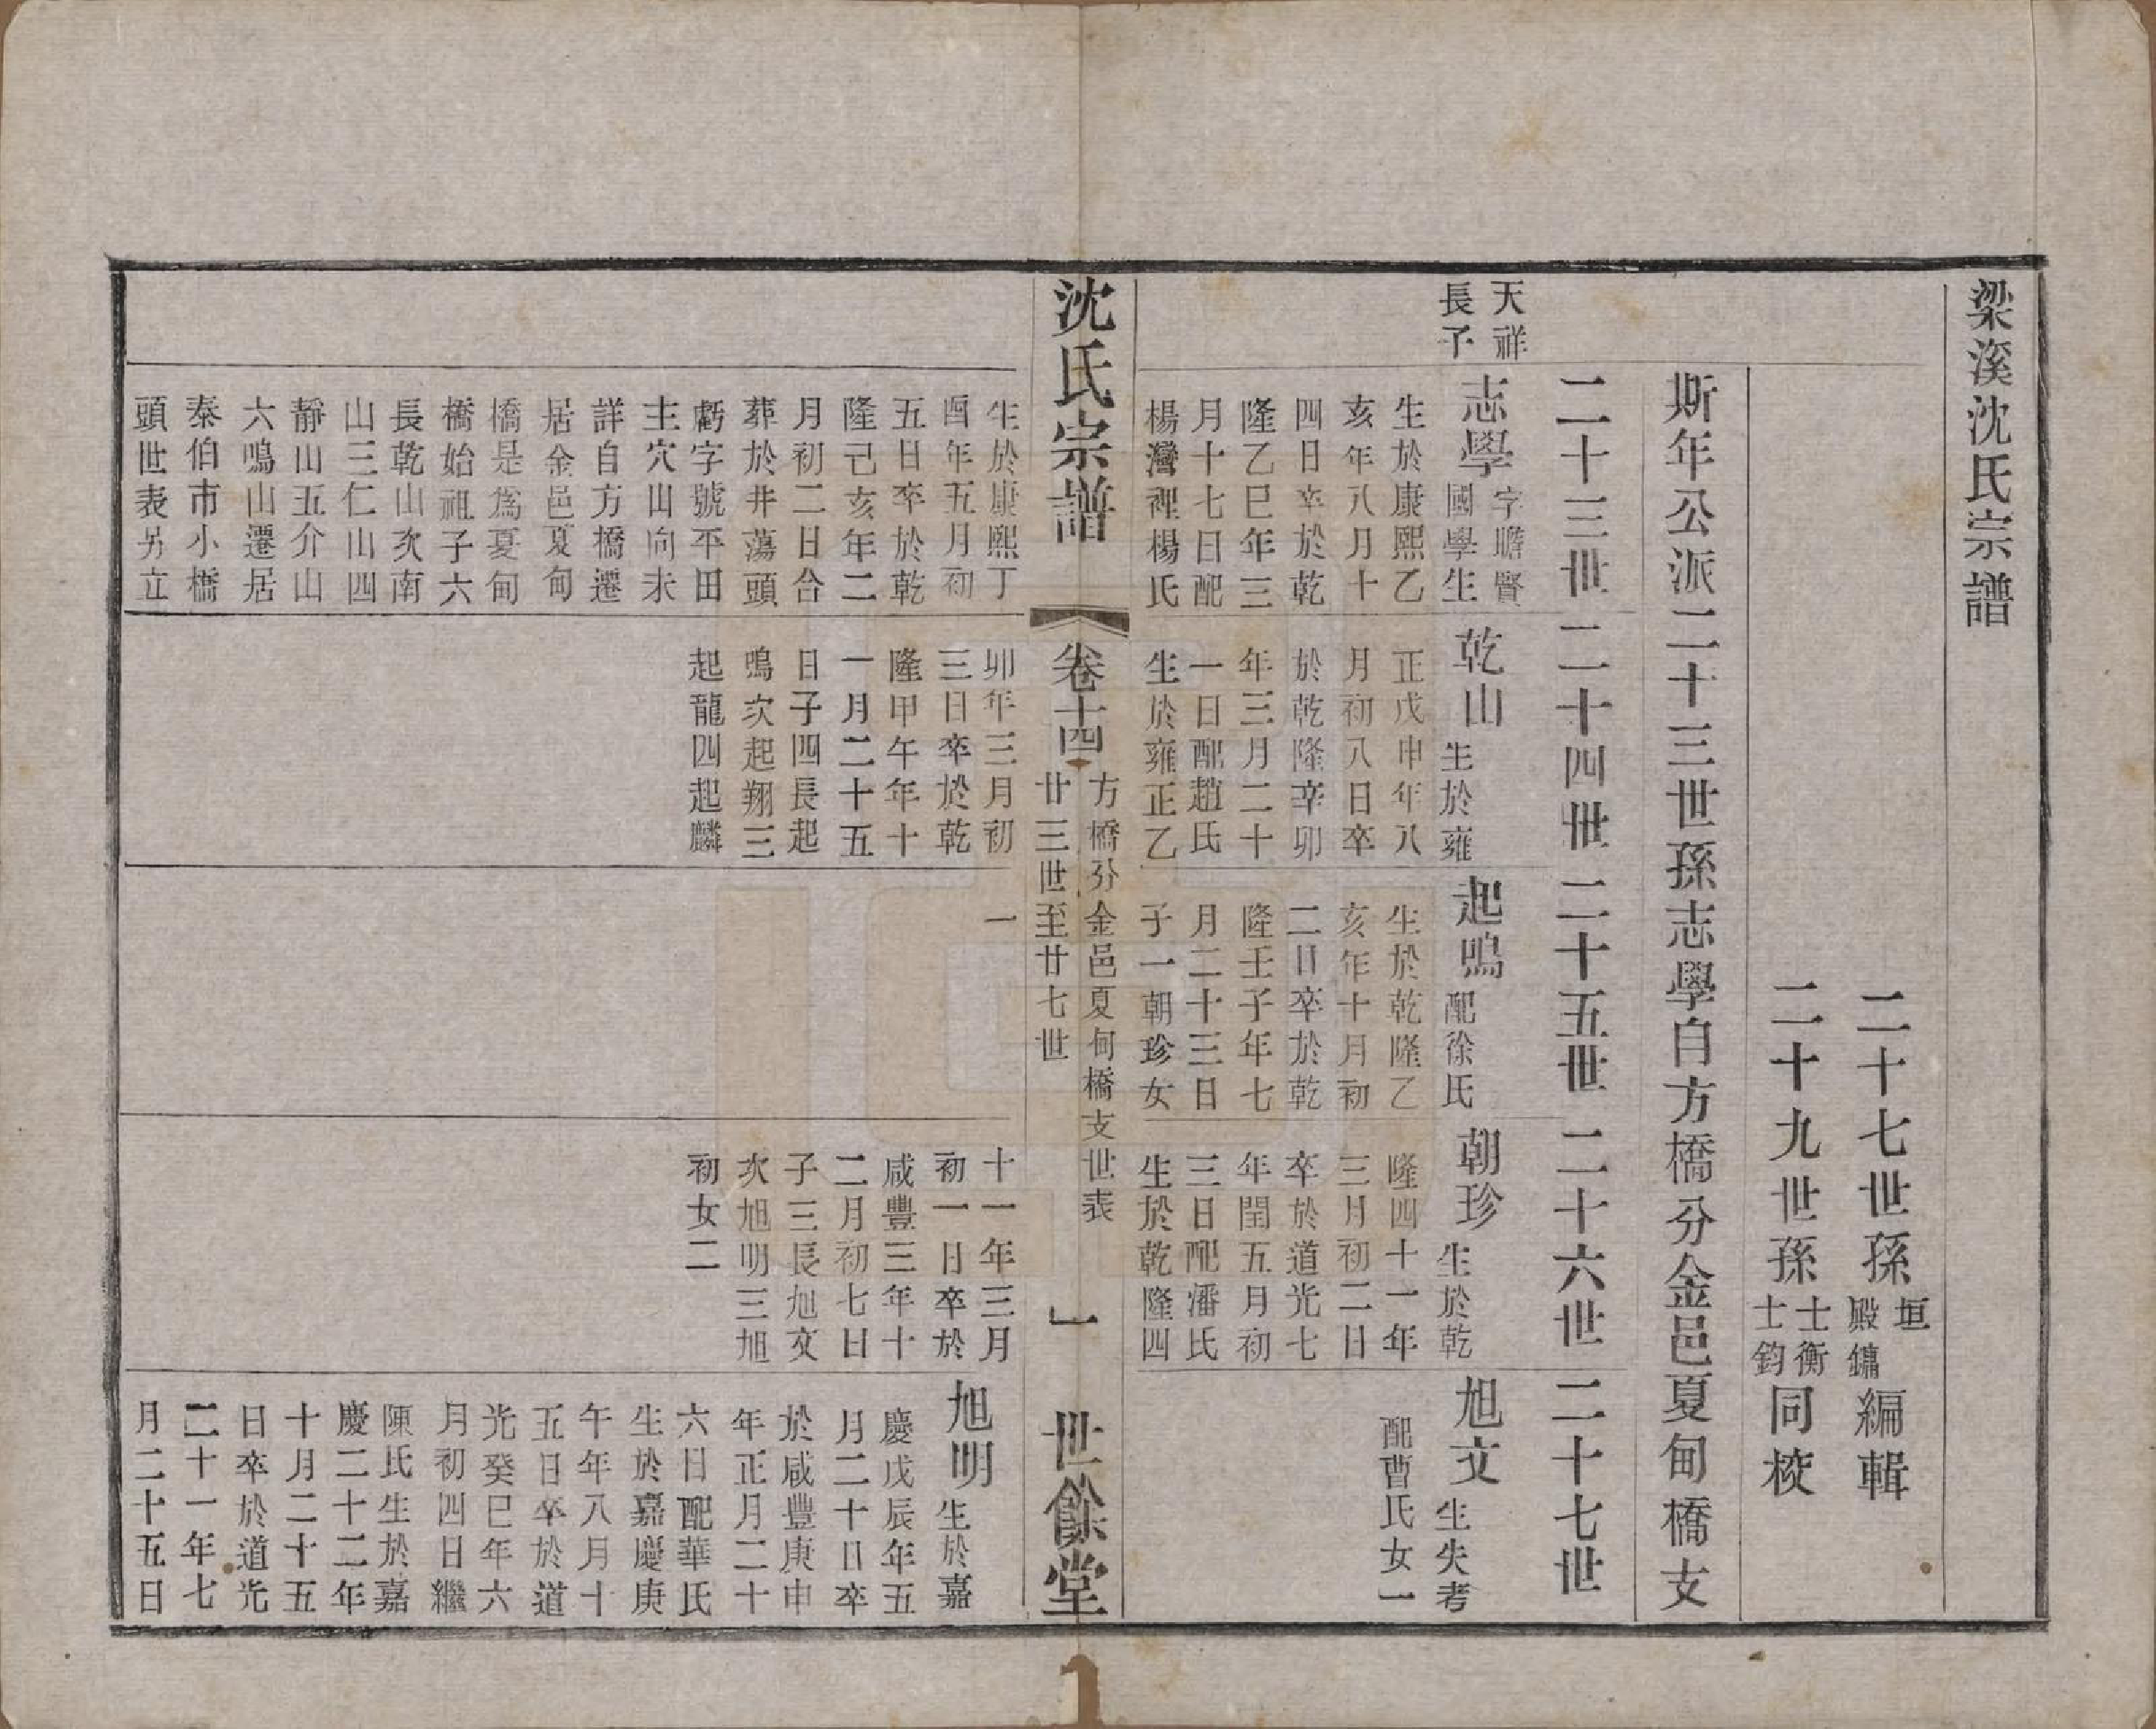 梁溪沈氏宗譜
二十七世孫垣殿鏞編輯
二十九世孫士衡士鈞同校
斯年公派二十三世孫志學自方橋分金邑夏甸橋支
二十三世
二十四世
二十五世
二十六世
二十七世
天祥
長子
志學字瞻賢
國學生
生於康熙乙
亥年八月十
四日卒於乾
隆乙巳年三
月十七日配
楊灣裡楊氏
生於康熙丁
酉年五月初
五日卒於乾
隆己亥年二
月初二日合
葬於井蕩頭
虧字號平田
主穴山向未
詳自方橋遷
居金邑夏甸
橋是爲夏甸
橋始祖子六
長乾山次南
山三仁山四
靜山五介山
六鳴山遷居
秦伯市小橋
頭世表另立
乾山生於雍
正戊申年八
月初八日卒
於乾隆辛卯
年三月二十
一日配趙氏
生於雍正乙
卯年三月初
三日卒於乾
隆甲午年十
一月二十五
日子四長起
鳴次起翔三
起龍四起麟
起鳴配徐氏
生於乾隆乙
亥年十月初
二日卒於乾
隆壬子年七
月二十三日
子一朝珍女
一
朝珍生於乾
隆四十一年
三月初二日
卒於道光七
年閏五月初
三日配潘氏
生於乾隆四
十一年三月
初一日卒於
咸豐三年十
二月初七日
子三長旭文
次旭明三旭
初女二
旭文生失考
配曹氏女一
旭明生於嘉
慶戊辰年五
月二十日卒
於咸豐庚申
年正月二十
六日配華氏
生於嘉慶庚
午年八月十
五日卒於道
光癸巳年六
月初四日繼
陳氏生於嘉
慶二十二年
十月二十五
日卒於道光
二十一年七
月二十五日
沈氏宗譜
卷十四
方橋分金邑夏甸橋支世表
廿三世至廿七世
一
世餘堂